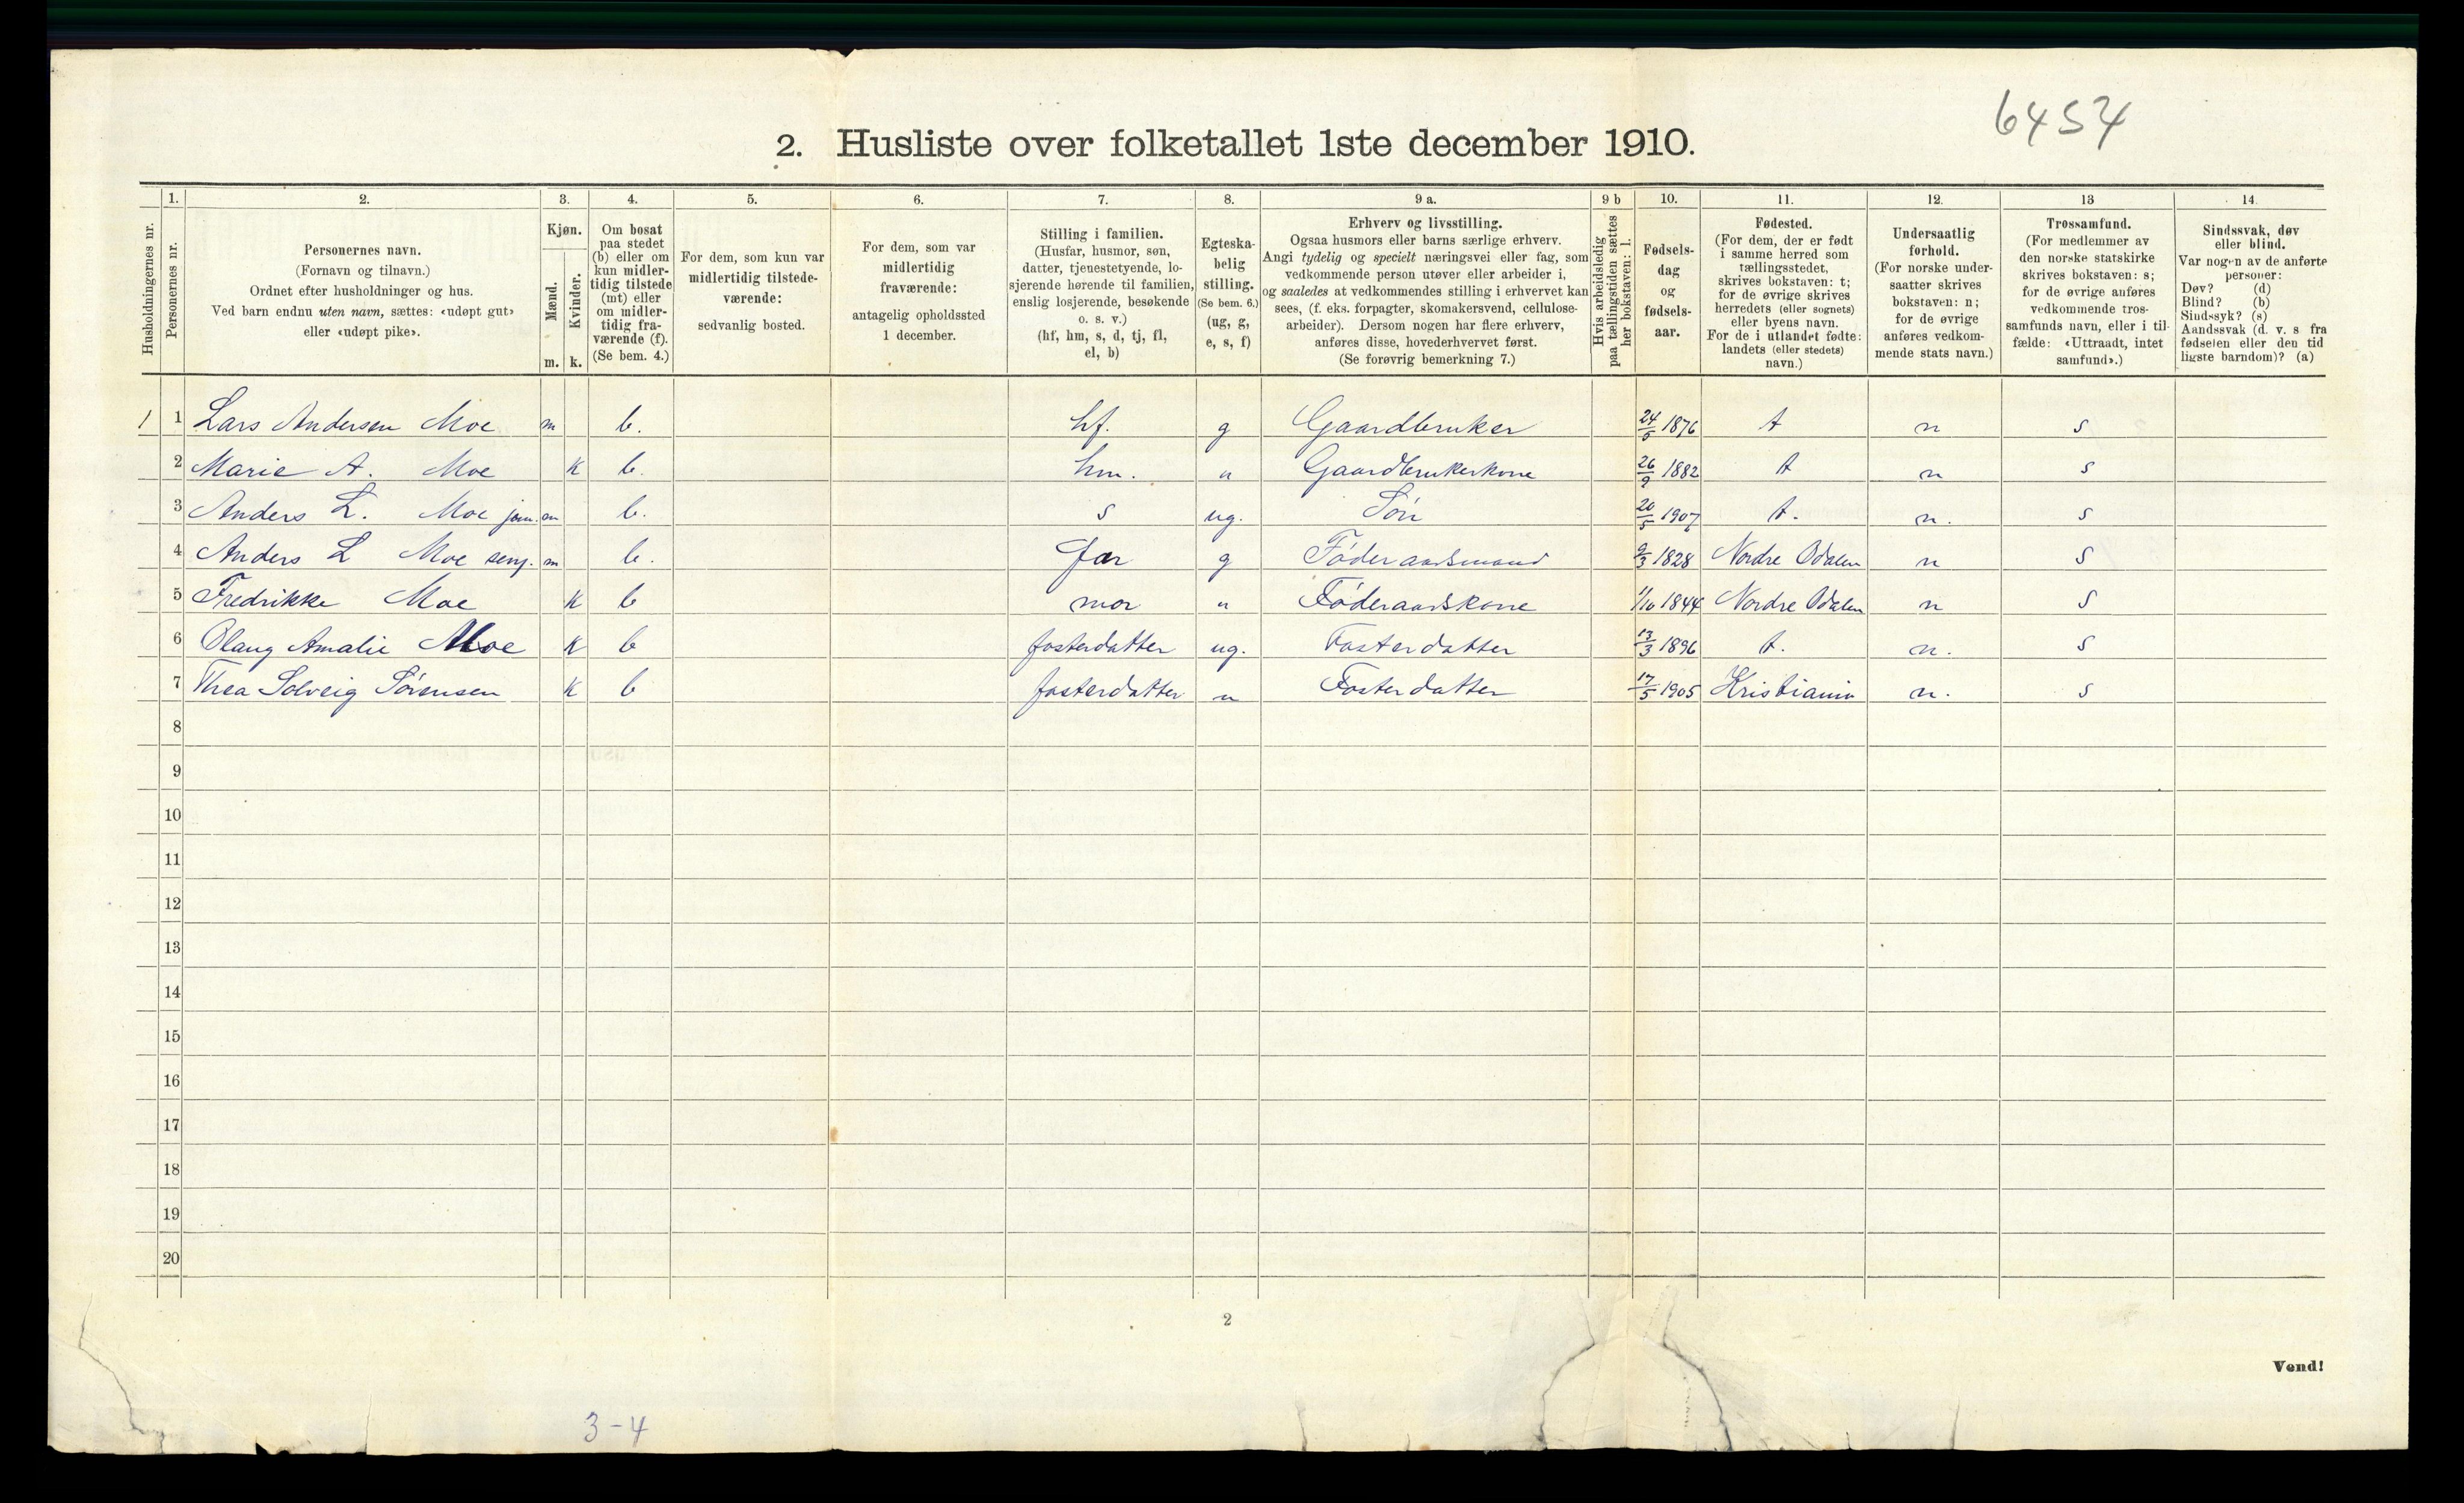 6454
2. Husliste over folketallet 1ste december 1910.
Husholdningernes nr.
1.
Personernes nr.
2.
Personernes navn.
(Fornavn og tilnavn.)
Ordnet efter husholdninger og hus.
Ved barn endnu uten navn, sættes: «udøpt gut»
eller «udøpt pike».
3.
Kjøn.
Mænd.
Kvinder.
m. k.
4.
Om bosat
paa stedet
(b) eller om
kun midler-
tidig tilstede
(mt) eller
om midler-
tidig fra-
værende (f).
(Se bem. 4.)
5.
For dem, som kun var
midlertidig tilstede-
værende:
sedvanlig bosted.
6.
For dem, som var
midlertidig
fraværende:
antagelig opholdssted
1 december.
7.
Stilling i familien.
(Husfar, husmor, søn,
datter, tjenestetyende, lo-
sjerende hørende til familien,
enslig losjerende, besøkende
o. s. v.)
(hf, hm, s, d, tj, fl,
el, b)
8.
Egteska-
belig
stilling.
(Se bem. 6.)
(ug, g,
e, s, f)
9 a.
Erhverv og livsstilling.
Ogsaa husmors eller barns særlige erhverv.
Angi tydelig og specielt næringsvei eller fag, som
vedkommende person utøver eller arbeider i,
og saaledes at vedkommendes stilling i erhvervet kan
sees, (f. eks. forpagter, skomakersvend, cellulose-
arbeider). Dersom nogen har flere erhverv,
anføres disse, hovederhvervet først.
(Se forøvrig bemerkning 7.)
9 b
Hvis arbeidsledig
paa tællingstiden sættes
her bokstaven: l.
10.
Fødsels-
dag
og
fødsels-
aar.
11.
Fødested.
(For dem, der er født
i samme herred som
tællingsstedet,
skrives bokstaven: t;
for de øvrige skrives
herredets (eller sognets)
eller byens navn.
For de i utlandet fødte:
landets (eller stedets)
navn.)
12.
Undersaatlig
forhold.
(For norske under-
saatter skrives
bokstaven: n;
for de øvrige
anføres vedkom-
mende stats navn.)
13
Trossamfund.
(For medlemmer av
den norske statskirke
skrives bokstaven: s;
for de øvrige anføres
vedkommende tros-
samfunds navn, eller i til-
fælde: «Uttraadt, intet
samfund».)
14
Sindssvak, døv
eller blind.
Var nogen av de anførte
personer:
Døv? (d)
Blind? (b)
Sindssyk? (s)
Aandssvak (d. v. s fra
fødselen eller den tid
ligste barndom)? (a)
1 1 Lars Andersen Moe m b. hf. g Gaardbruker 24/5 1876 t n s
2 Marie A. Moe k b. hm. " Gaardbrukerkone 26/9 1882 t n s
3 Anders L. Moe jun. m b. s ug. Søn 20/5 1907 t. n. s
4 Anders L Moe senj. m b. far g Føderaadsmand 9/3 1828 Nordre Odalen n s
5 Fredrikke Moe k b mor " Føderaadskone 1/10 1844 Nordre Odalen n s
6 Olaug Amalie Moe k b fosterdatter ug. Fosterdatter 13/3 1896 t. n. s
7 Thea Solveig Sørensen k b fosterdatter " Fosterdatter 17/5 1905 Kristiania n. s
8
9
10
11
12
13
14
15
16
17
18
19
20
2
Vend!
3-4